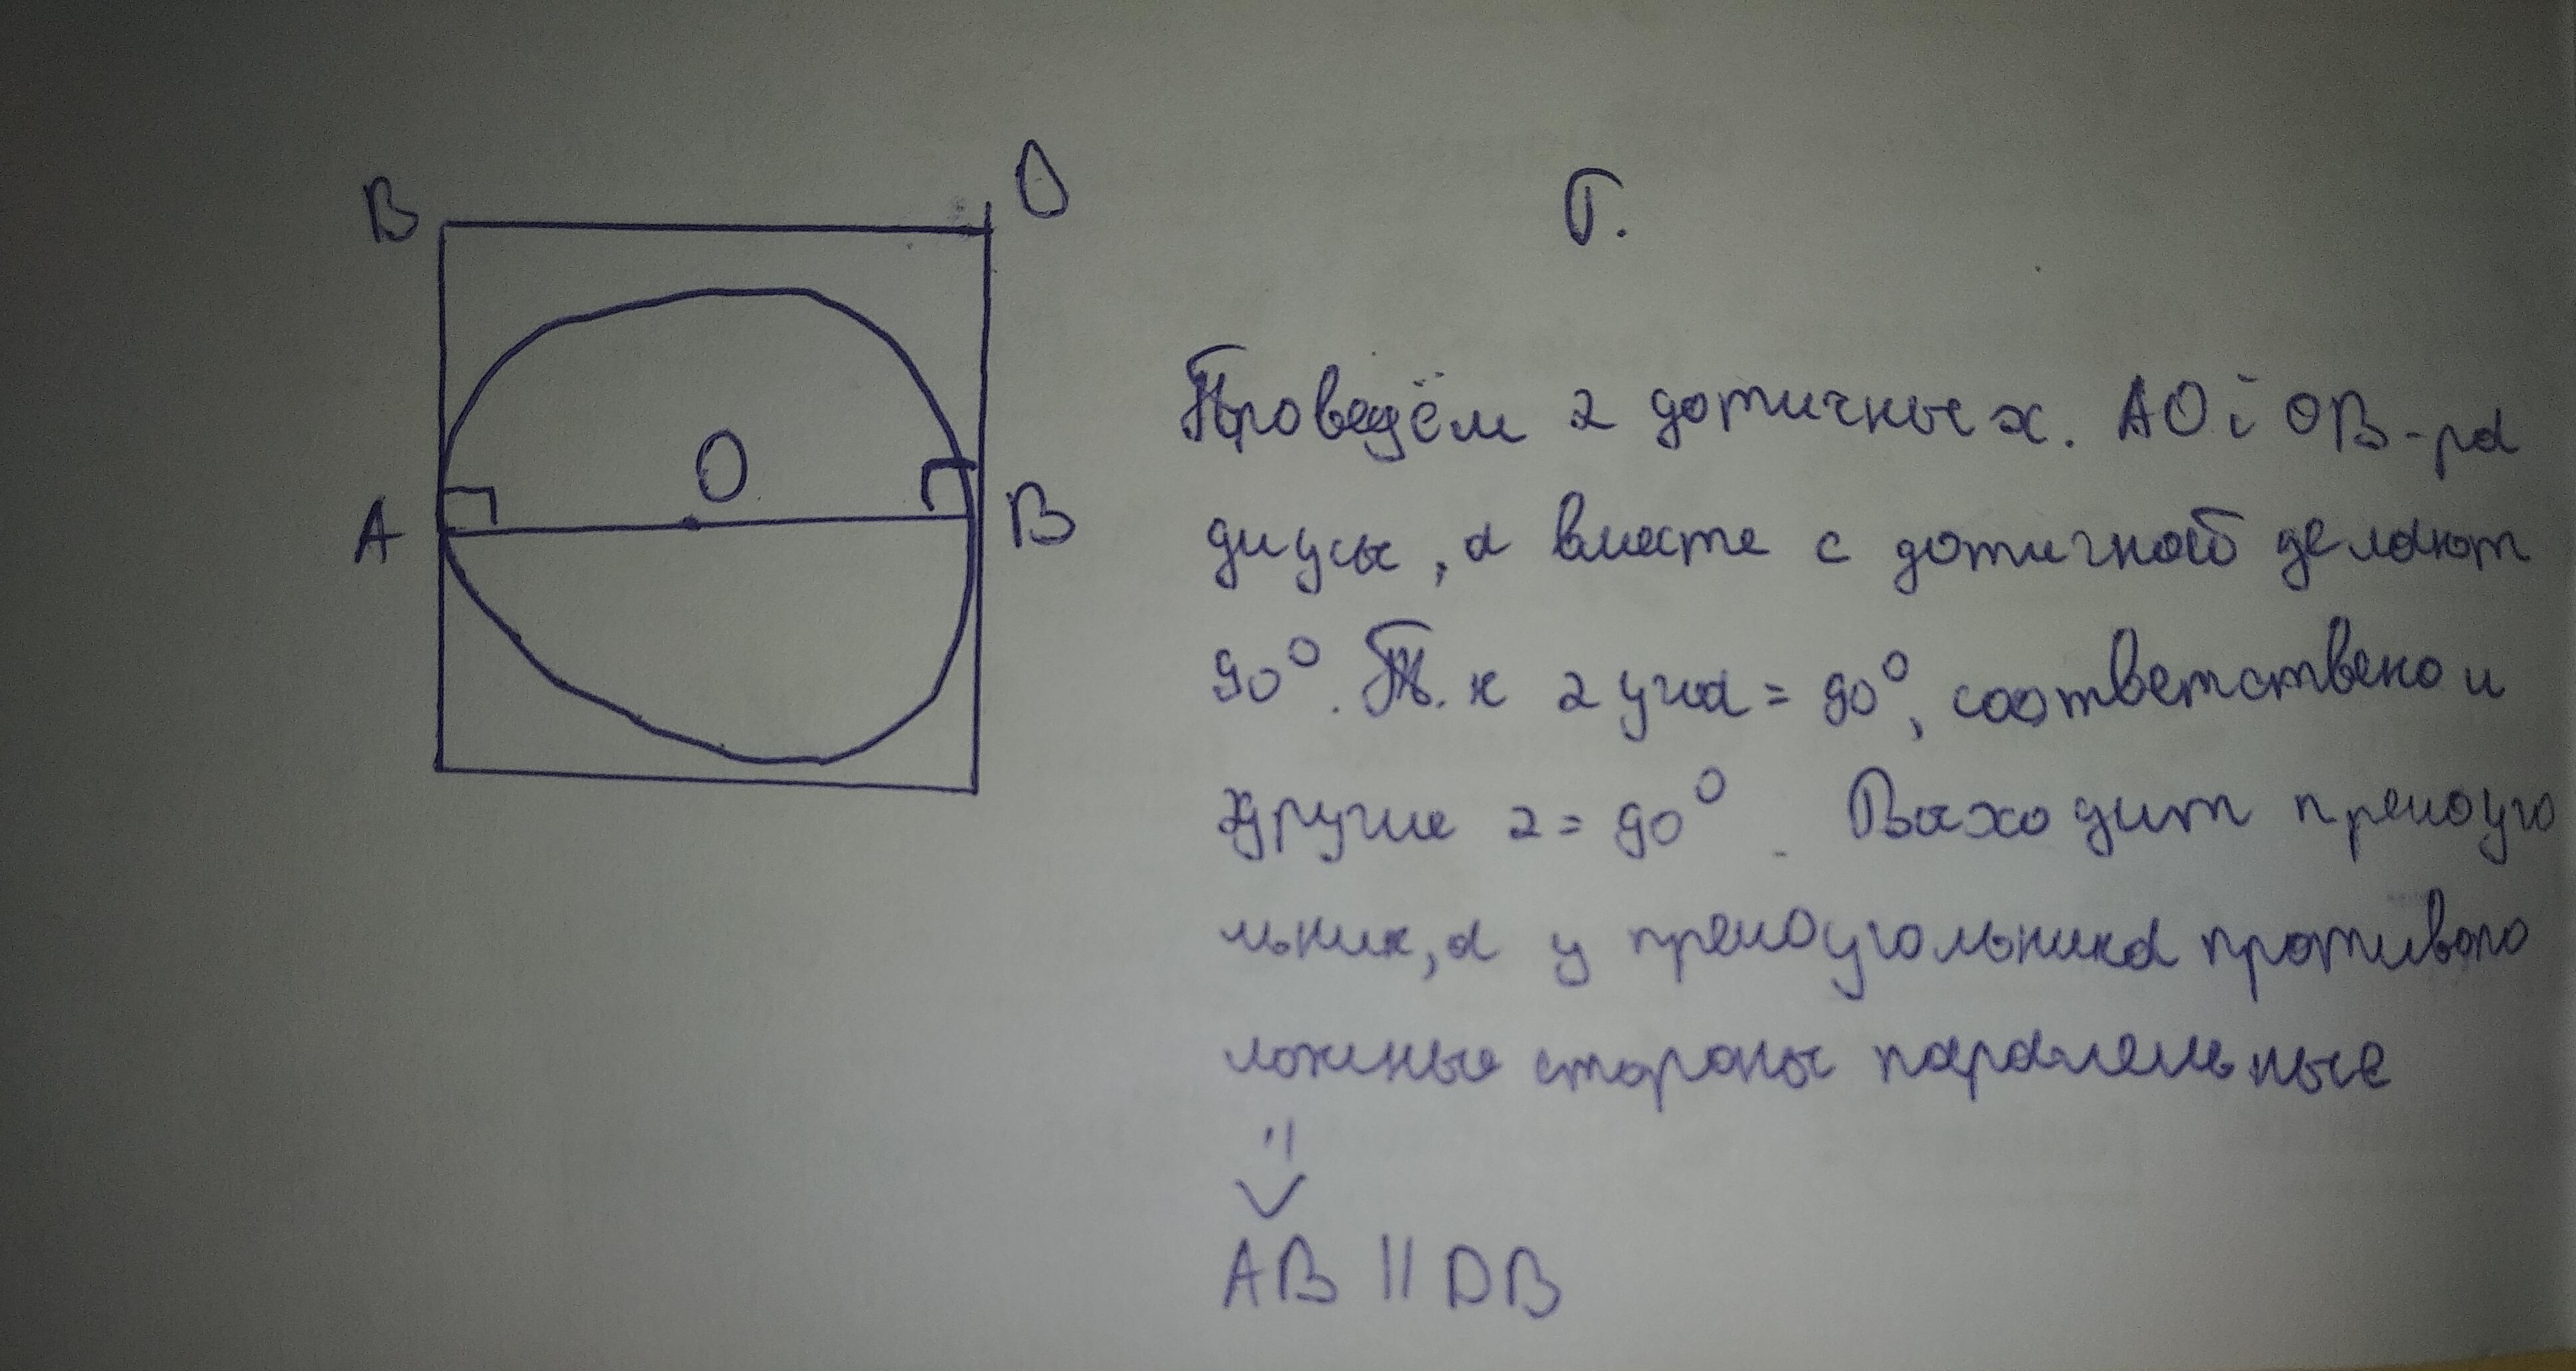 B
D
O
A
B
Г.
Проведём 2 дотичных. AO і OB - ра
диусы, а вместе с дотичной делают
90°. Т.к 2 угла = 90°, соответствено и
другие 2 = 90°. Выходит прямоуго
льник, а у прямоугольника противопо
ложные стороны паралельные
AB || DB